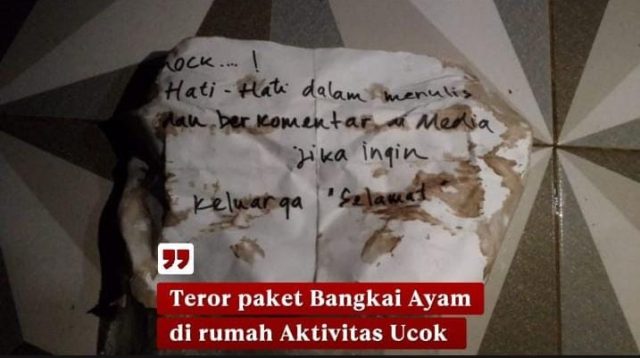 ock....!
Hati-Hati dalam menulis
dan berkomentar Media
jika ingin
Keluarga "Selamat"
Teror paket Bangkai Ayam
di rumah Aktivitas Ucok